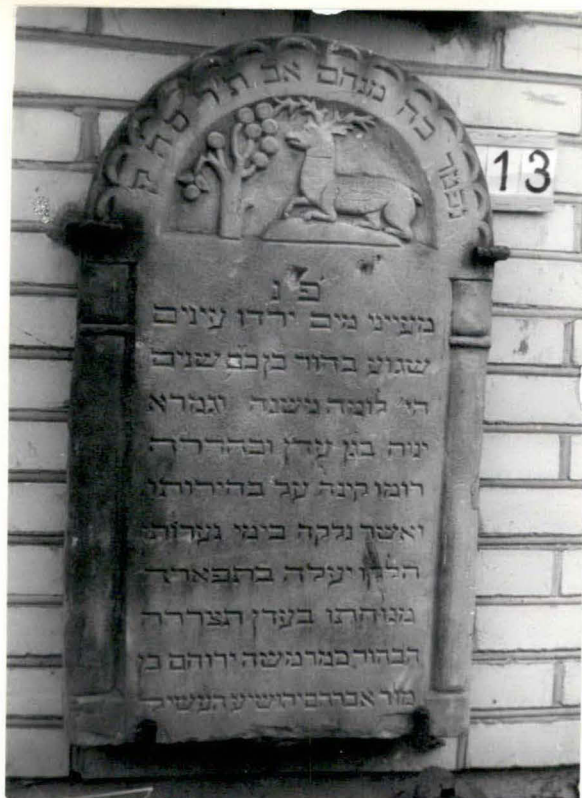 נפטר כה מנחם אב ת'ר'ס'ה ק
13
פ נ
מעייני מים ירדו עינים
שגוע בחור בן כב שנים
הי' לומד משנה וגמרא
ינוח בגן עדן ובהדרה
רוממו קינה על בחירותו
ואשר נלקה בימי נערותו
הלכו יעלה בתפארה
מנוחתו בעדן תצררה
הבחור כמר משה ירוחם בן
מור אברהם יהושיע העשיל